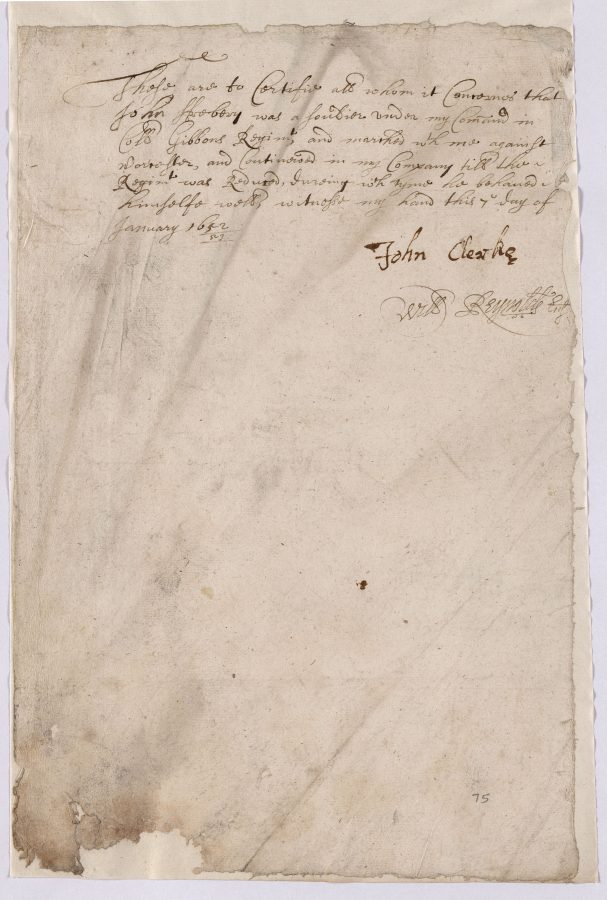 These are to Certifie all whom it Concernes that
John was a souldier under my Comand in
Coll Gibbons Regimt, and marched wth me against
Worcester, and Continewed in my Company till the
Regimt was Reduced, dureing wch tyme he behaved
himselfe well, witnesse my hand this 7 day of
January 1652
John Clerke
Will Reynolds
75